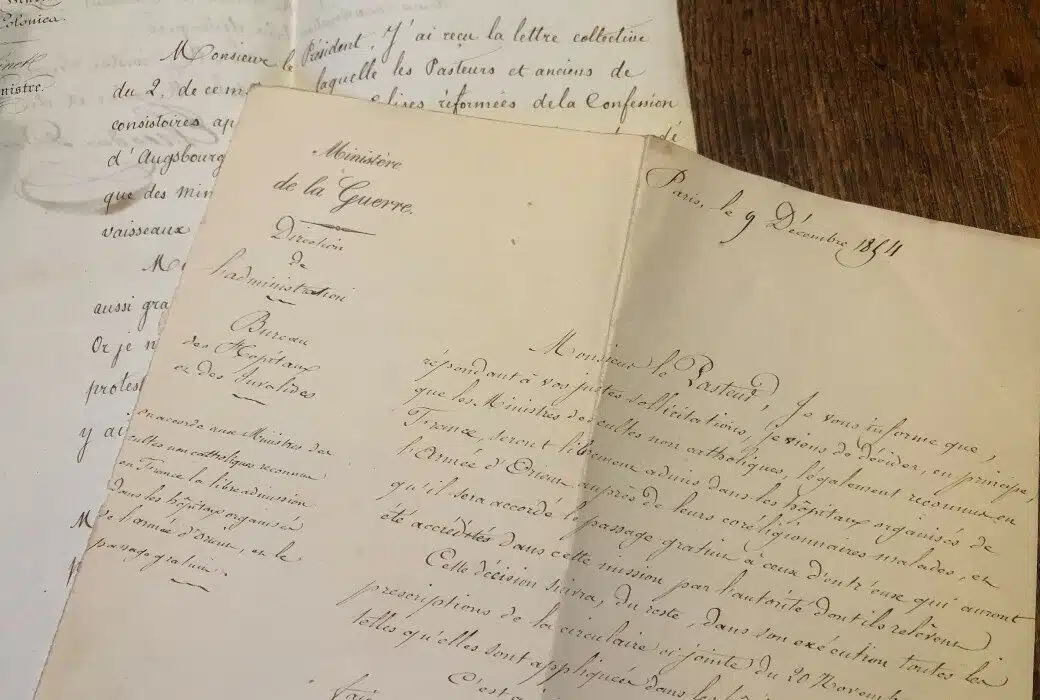 Colonies.
Ministre.
Monsieur le Président, J'ai reçu la lettre collective
du 2, de ce m
laquelle les Pasteurs et anciens de
consistoires ap
lises réformées de la Confession
d'Augsbourg
que des min
vaisseaux
aussi gra
Or je n
protes
y ai
Ministère
de la Guerre.
Direction
de
l'administration
Bureau
des Hôpitaux
et des Invalides
on accorde aux Ministres des
cultes non catholiques reconnus
en France la libre admission
dans les hôpitaux organisés
de l'armée d'Orient, et le
passage gratuit.
Paris, le 9 Décembre 1854
Monsieur le Pasteur, Je vous informe que,
répondant à vos justes sollicitations, je viens de décider, en principe,
que les Ministres des cultes non catholiques, légalement reconnus en
France, seront librement admis dans les hôpitaux organisés de
l'Armée d'Orient auprès de leurs coréligionnaires malades, et
qu'il sera accordé le passage gratuit à ceux d'entr'eux qui auront
été accrédités dans cette mission par l'autorité dont ils relèvent.
Cette décision suivra, du reste, dans son exécution toutes les
prescriptions de la circulaire ci-jointe du 20 Novembre
telles qu'elles sont appliquées dans les
C'est a